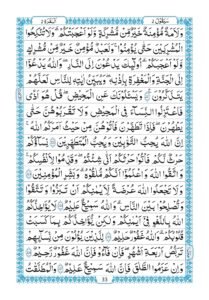 سيقول ٢ البقرة ٢
وَلَاَمَةٌ مُّؤْمِنَةٌ خَيْرٌ مِّنْ مُّشْرِكَةٍ وَّلَوْ اَعْجَبَتْكُمْ ۚ وَلَا تُنْكِحُوا
الْمُشْرِكِيْنَ حَتّٰى يُؤْمِنُوْا ؕ وَلَعَبْدٌ مُّؤْمِنٌ خَيْرٌ مِّنْ مُّشْرِكٍ
وَّلَوْ اَعْجَبَكُمْ ؕ اُولٰٓئِكَ يَدْعُوْنَ اِلَى النَّارِ ۖ وَاللّٰهُ يَدْعُوْٓا
اِلَى الْجَنَّةِ وَالْمَغْفِرَةِ بِاِذْنِهٖ ۚ وَيُبَيِّنُ اٰيٰتِهٖ لِلنَّاسِ لَعَلَّهُمْ
يَتَذَكَّرُوْنَ وَيَسْـَٔلُوْنَكَ عَنِ الْمَحِيْضِ ؕ قُلْ هُوَ اَذًى
فَاعْتَزِلُوا النِّسَآءَ فِى الْمَحِيْضِ ۙ وَلَا تَقْرَبُوْهُنَّ حَتّٰى
يَطْهُرْنَ ۚ فَاِذَا تَطَهَّرْنَ فَاْتُوْهُنَّ مِنْ حَيْثُ اَمَرَكُمُ اللّٰهُ
اِنَّ اللّٰهَ يُحِبُّ التَّوَّابِيْنَ وَيُحِبُّ الْمُتَطَهِّرِيْنَ نِسَآؤُكُمْ
حَرْثٌ لَّكُمْ ۪ فَاْتُوْا حَرْثَكُمْ اَنّٰى شِئْتُمْ ؗ وَقَدِّمُوْا لِاَنْفُسِكُمْ
وَاتَّقُوا اللّٰهَ وَاعْلَمُوْٓا اَنَّكُمْ مُّلٰقُوْهُ ؕ وَبَشِّرِ الْمُؤْمِنِيْنَ
وَلَا تَجْعَلُوا اللّٰهَ عُرْضَةً لِّاَيْمَانِكُمْ اَنْ تَبَرُّوْا وَتَتَّقُوْا
وَتُصْلِحُوْا بَيْنَ النَّاسِ ؕ وَاللّٰهُ سَمِيْعٌ عَلِيْمٌ لَا يُؤَاخِذُكُمُ
اللّٰهُ بِاللَّغْوِ فِىْٓ اَيْمَانِكُمْ وَلٰكِنْ يُّؤَاخِذُكُمْ بِمَا كَسَبَتْ
قُلُوْبُكُمْ ؕ وَاللّٰهُ غَفُوْرٌ حَلِيْمٌ لِلَّذِيْنَ يُؤْلُوْنَ مِنْ نِّسَآئِهِمْ
تَرَبُّصُ اَرْبَعَةِ اَشْهُرٍ ۚ فَاِنْ فَآءُوْ فَاِنَّ اللّٰهَ غَفُوْرٌ رَّحِيْمٌ
وَاِنْ عَزَمُوا الطَّلَاقَ فَاِنَّ اللّٰهَ سَمِيْعٌ عَلِيْمٌ وَالْمُطَلَّقٰتُ